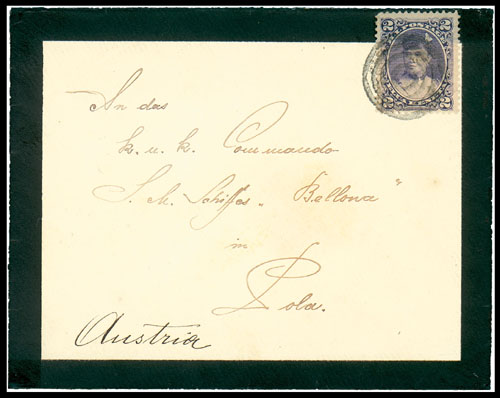 An das
k. u. k. Commando
S. M. Schiffes „Bellona“
in
Pola.
Austria
2 2
2 2